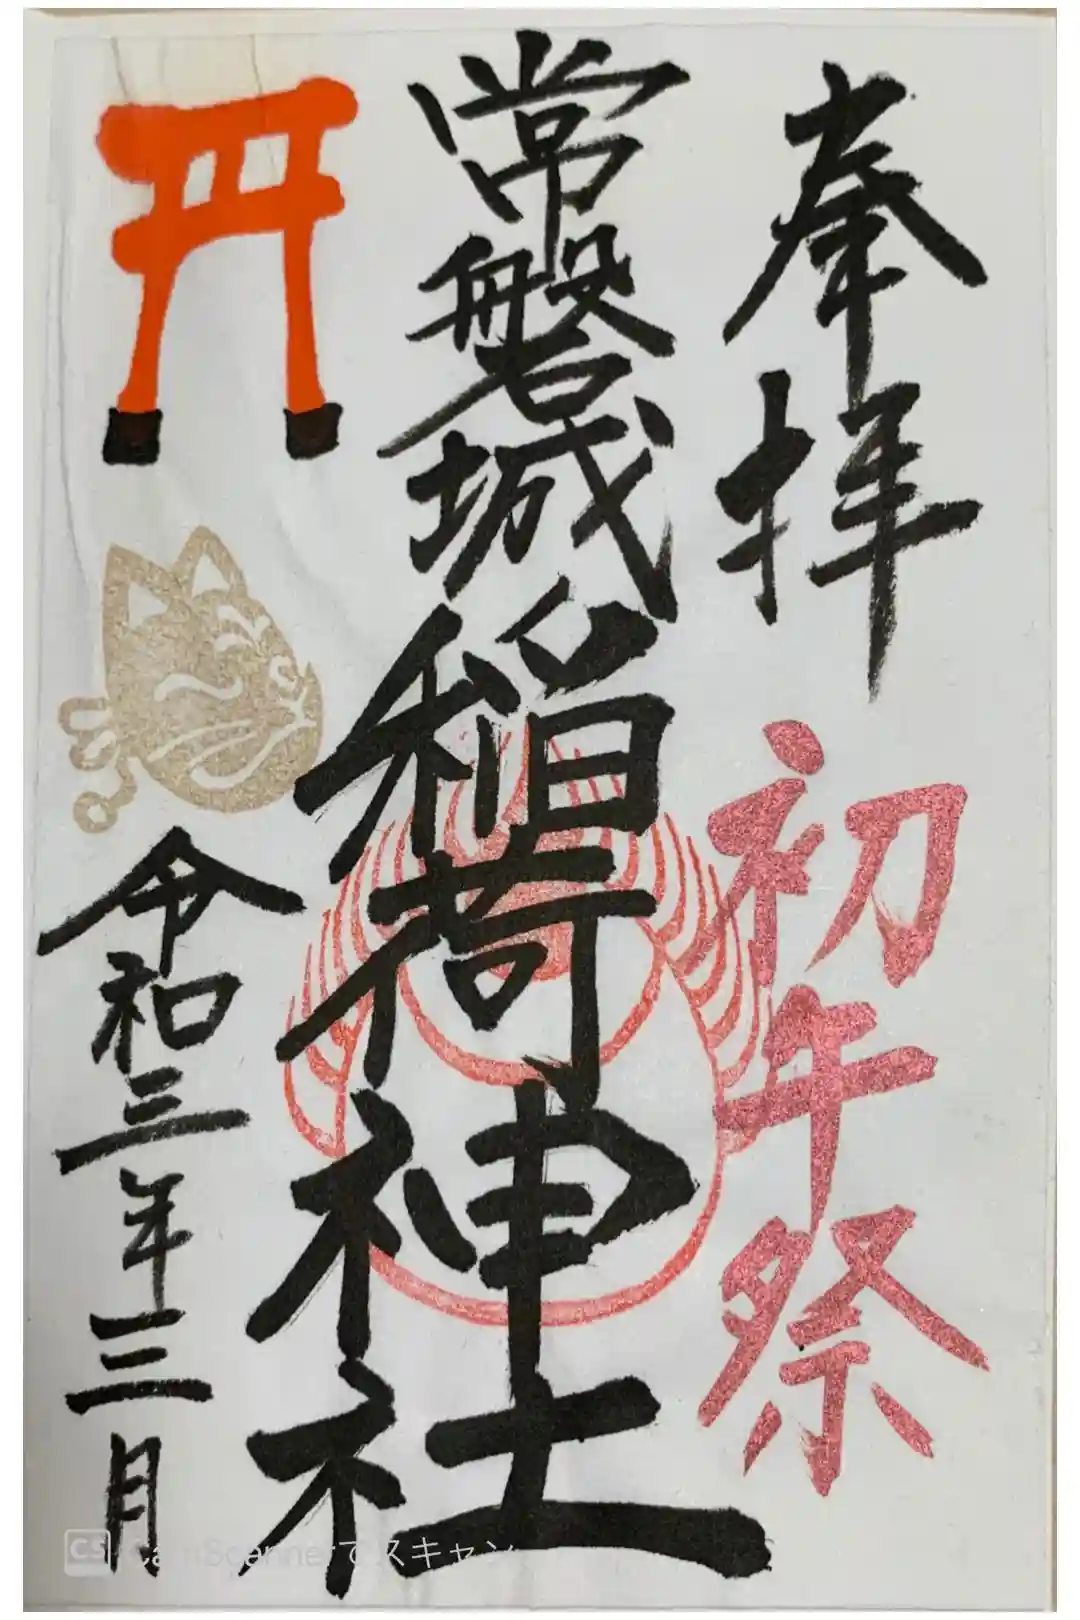 奉拝
初午祭
常磐城稲荷神社
令和三年三月
CS CamScannerでスキャン